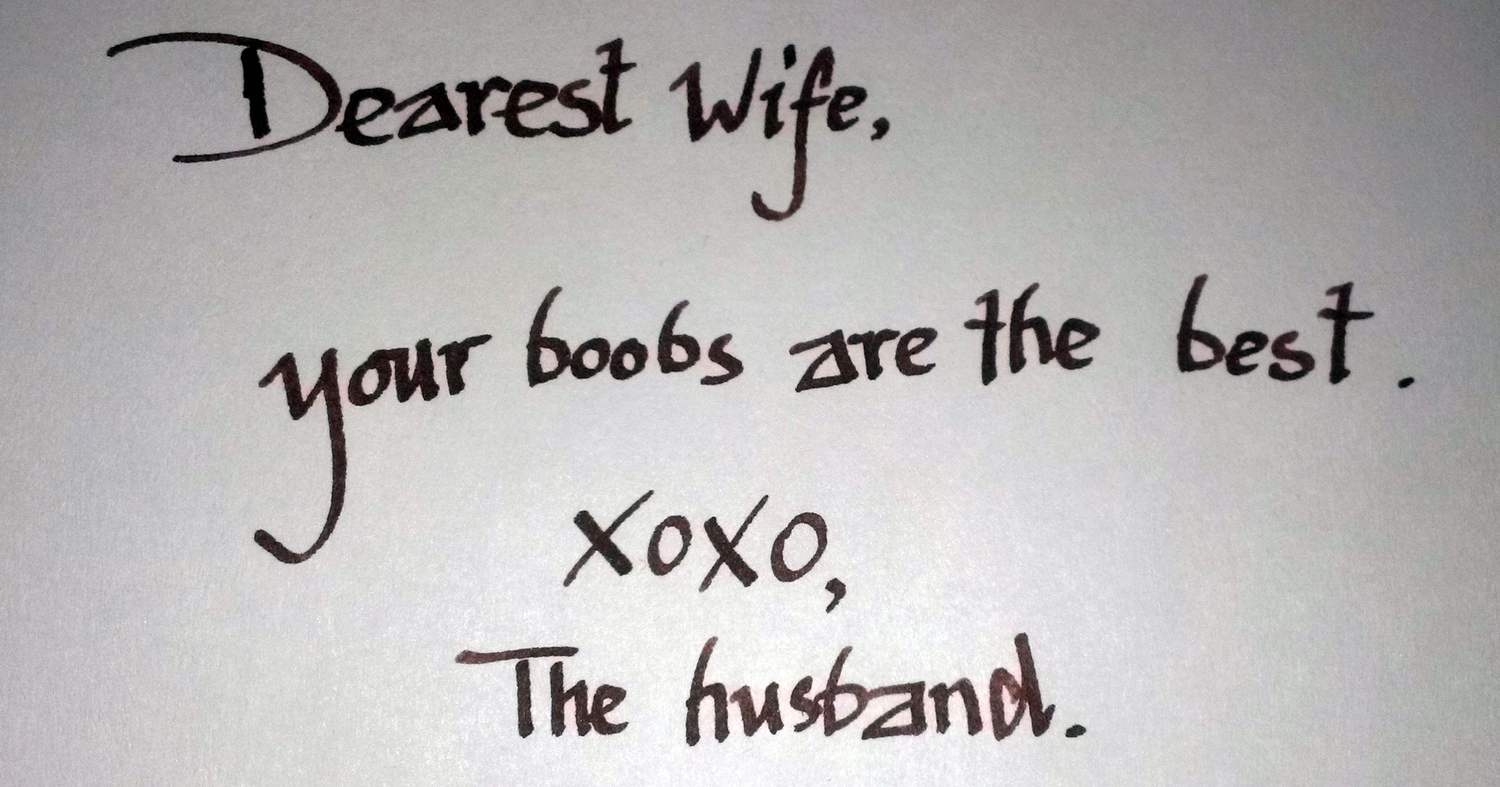 Dearest Wife,
your boobs are the best.
xoxo,
The husband.